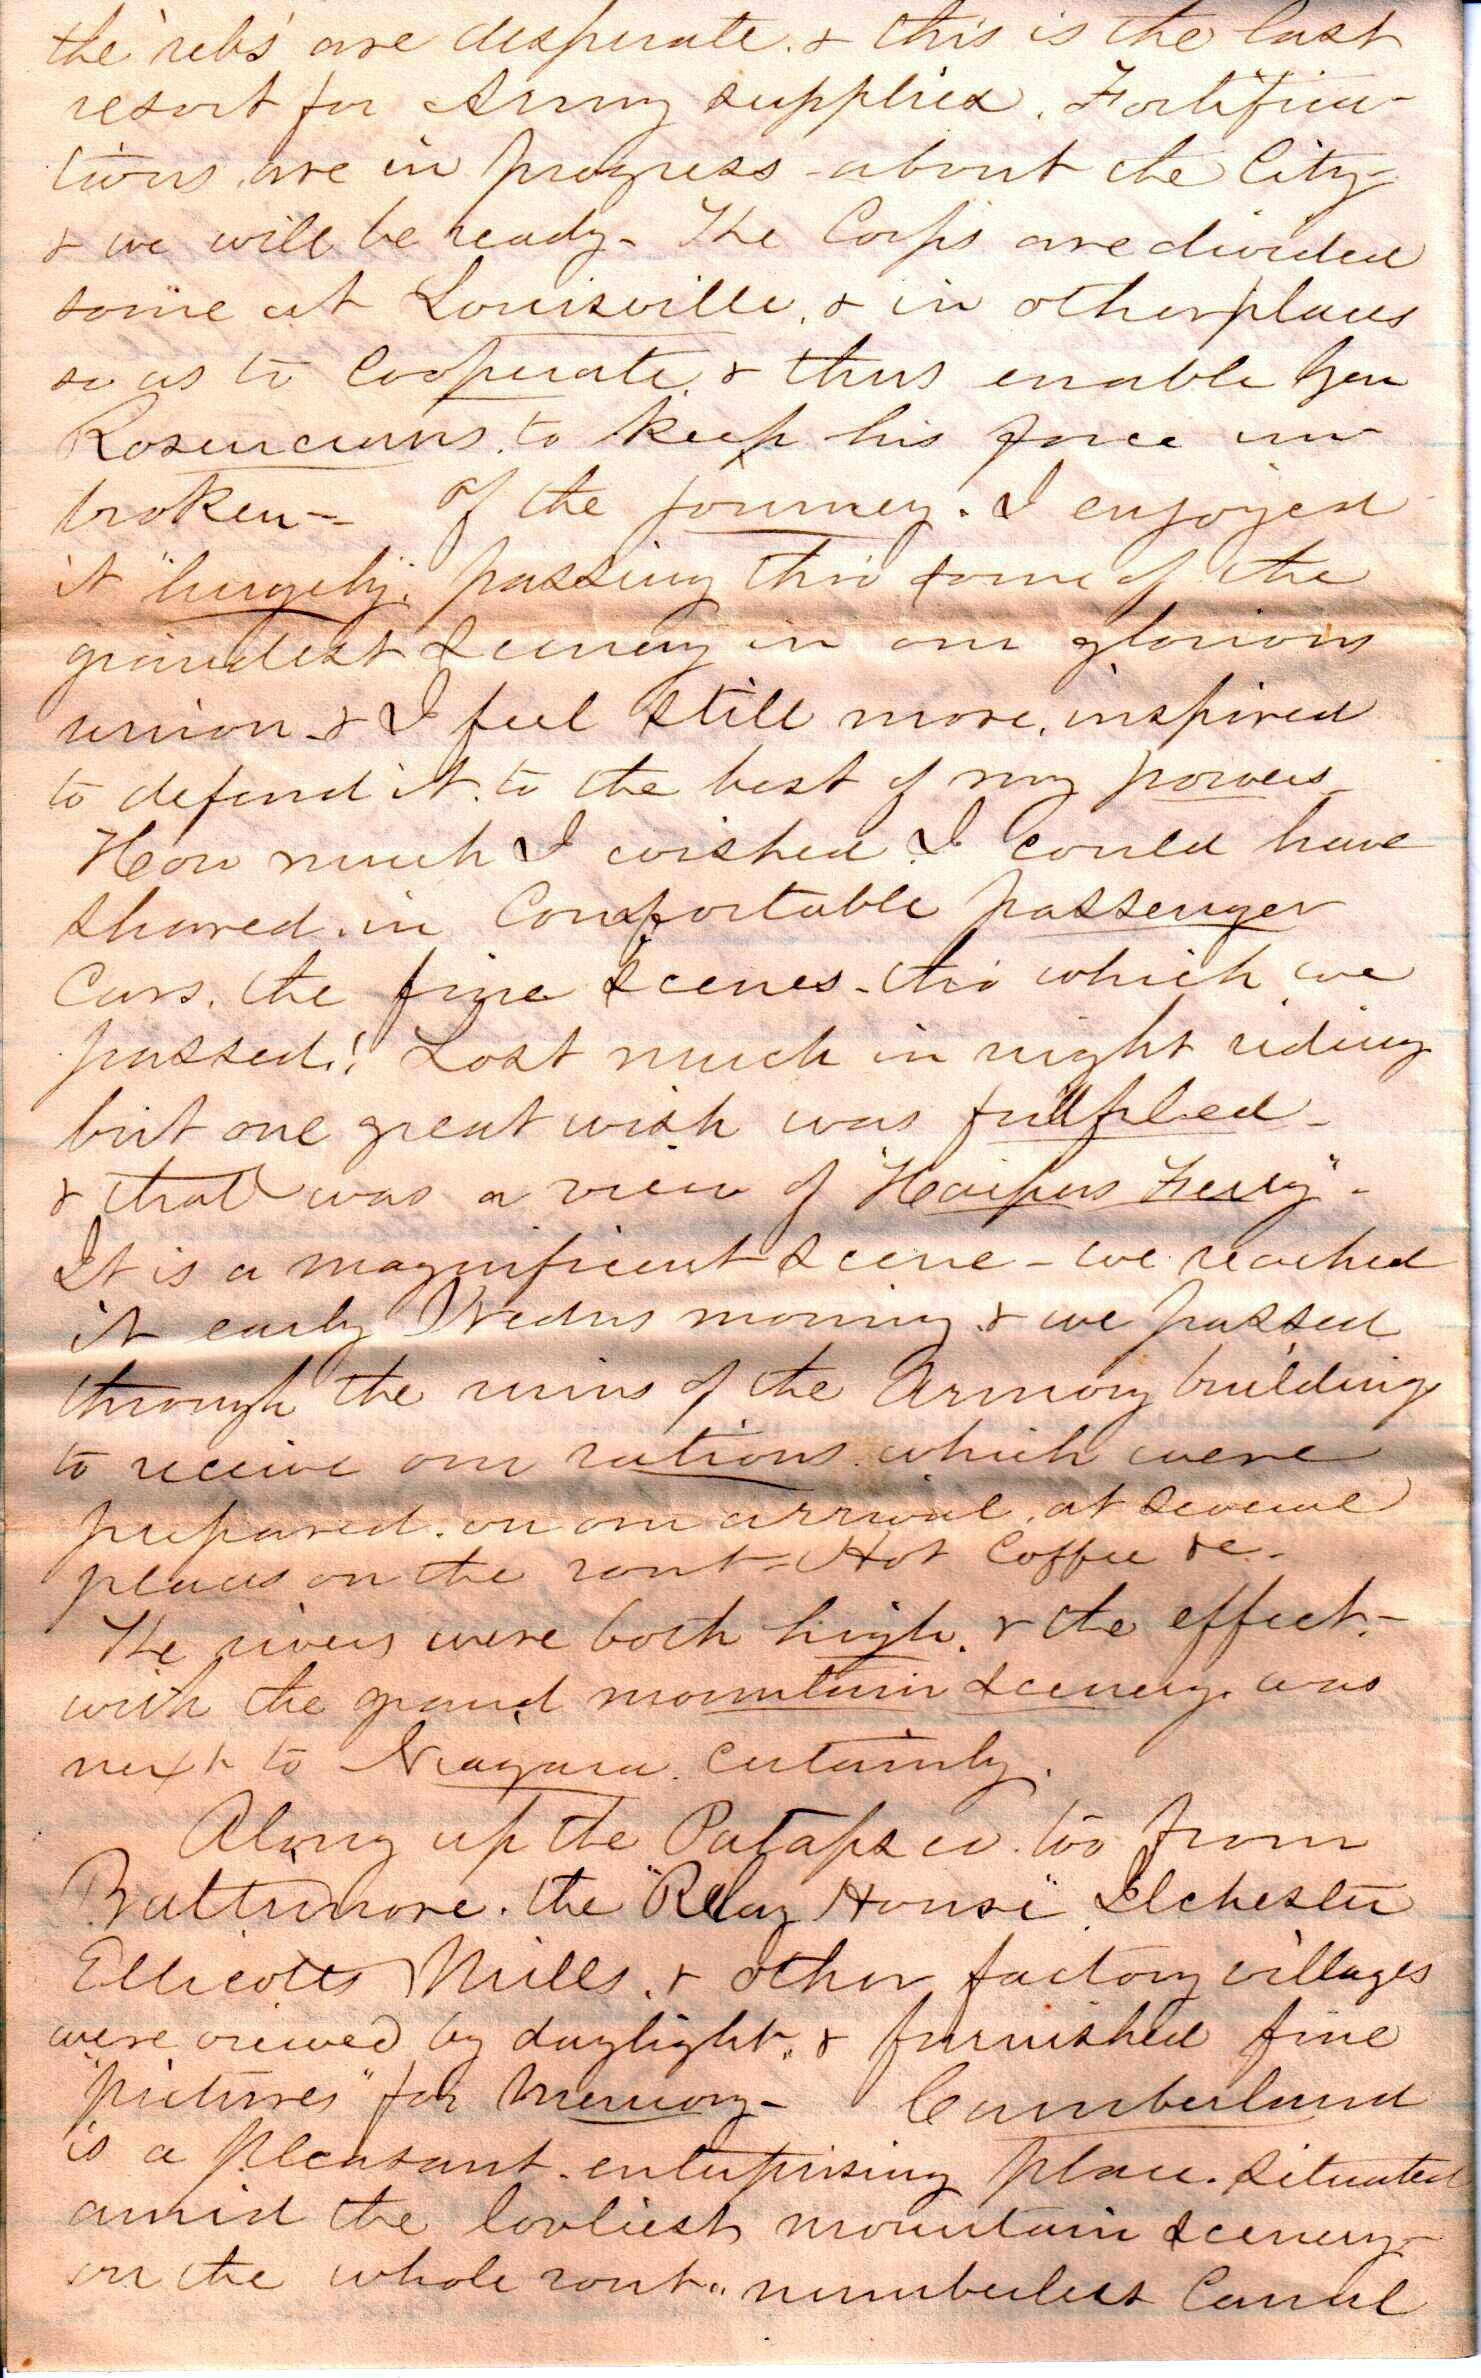 the 'rebs' are desperate. & this is the last
resort for Army supplies. Fortifica-
tions are in progress about the City-
& we will be ready- The Corps are divided
some at Louisville, & in other places
so as to Cooperate & thus enable Gen
Rosencrans to keep his force un-
broken-- Of the journey. I enjoyed
it "hugely", passing thro' some of the
grandest scenery in our glorious
union & I feel still more, inspired
to defend it to the best of my powers
How much I wished I could have
shared in Comfortable passenger
Cars. the fine scenes- thro' which we
passed! Lost much in night riding
but one great wish was fulfilled-
& that was a view of "Harpers Ferry"-
It is a magnificent scene- we reached
it early Wedns morning & we passed
through the ruins of the Armory building
to receive our rations which were
prepared. on our arrival. at several
places on the rout- Hot Coffee &c-
The rivers were both high. & the effect-
with the grand mountain scenery. was
next to Niagara certainly.
Along up the Patapsco too from
Baltimore. the "Relay House" Ilchester
Ellicotts Mills. & other factory villages
were viewed by daylight. & furnished fine
"pictures" for memory- Cumberland
is a pleasant. enterprising place. situated
amid the lovliest mountain scenery-
on the whole rout.. numberless Canal